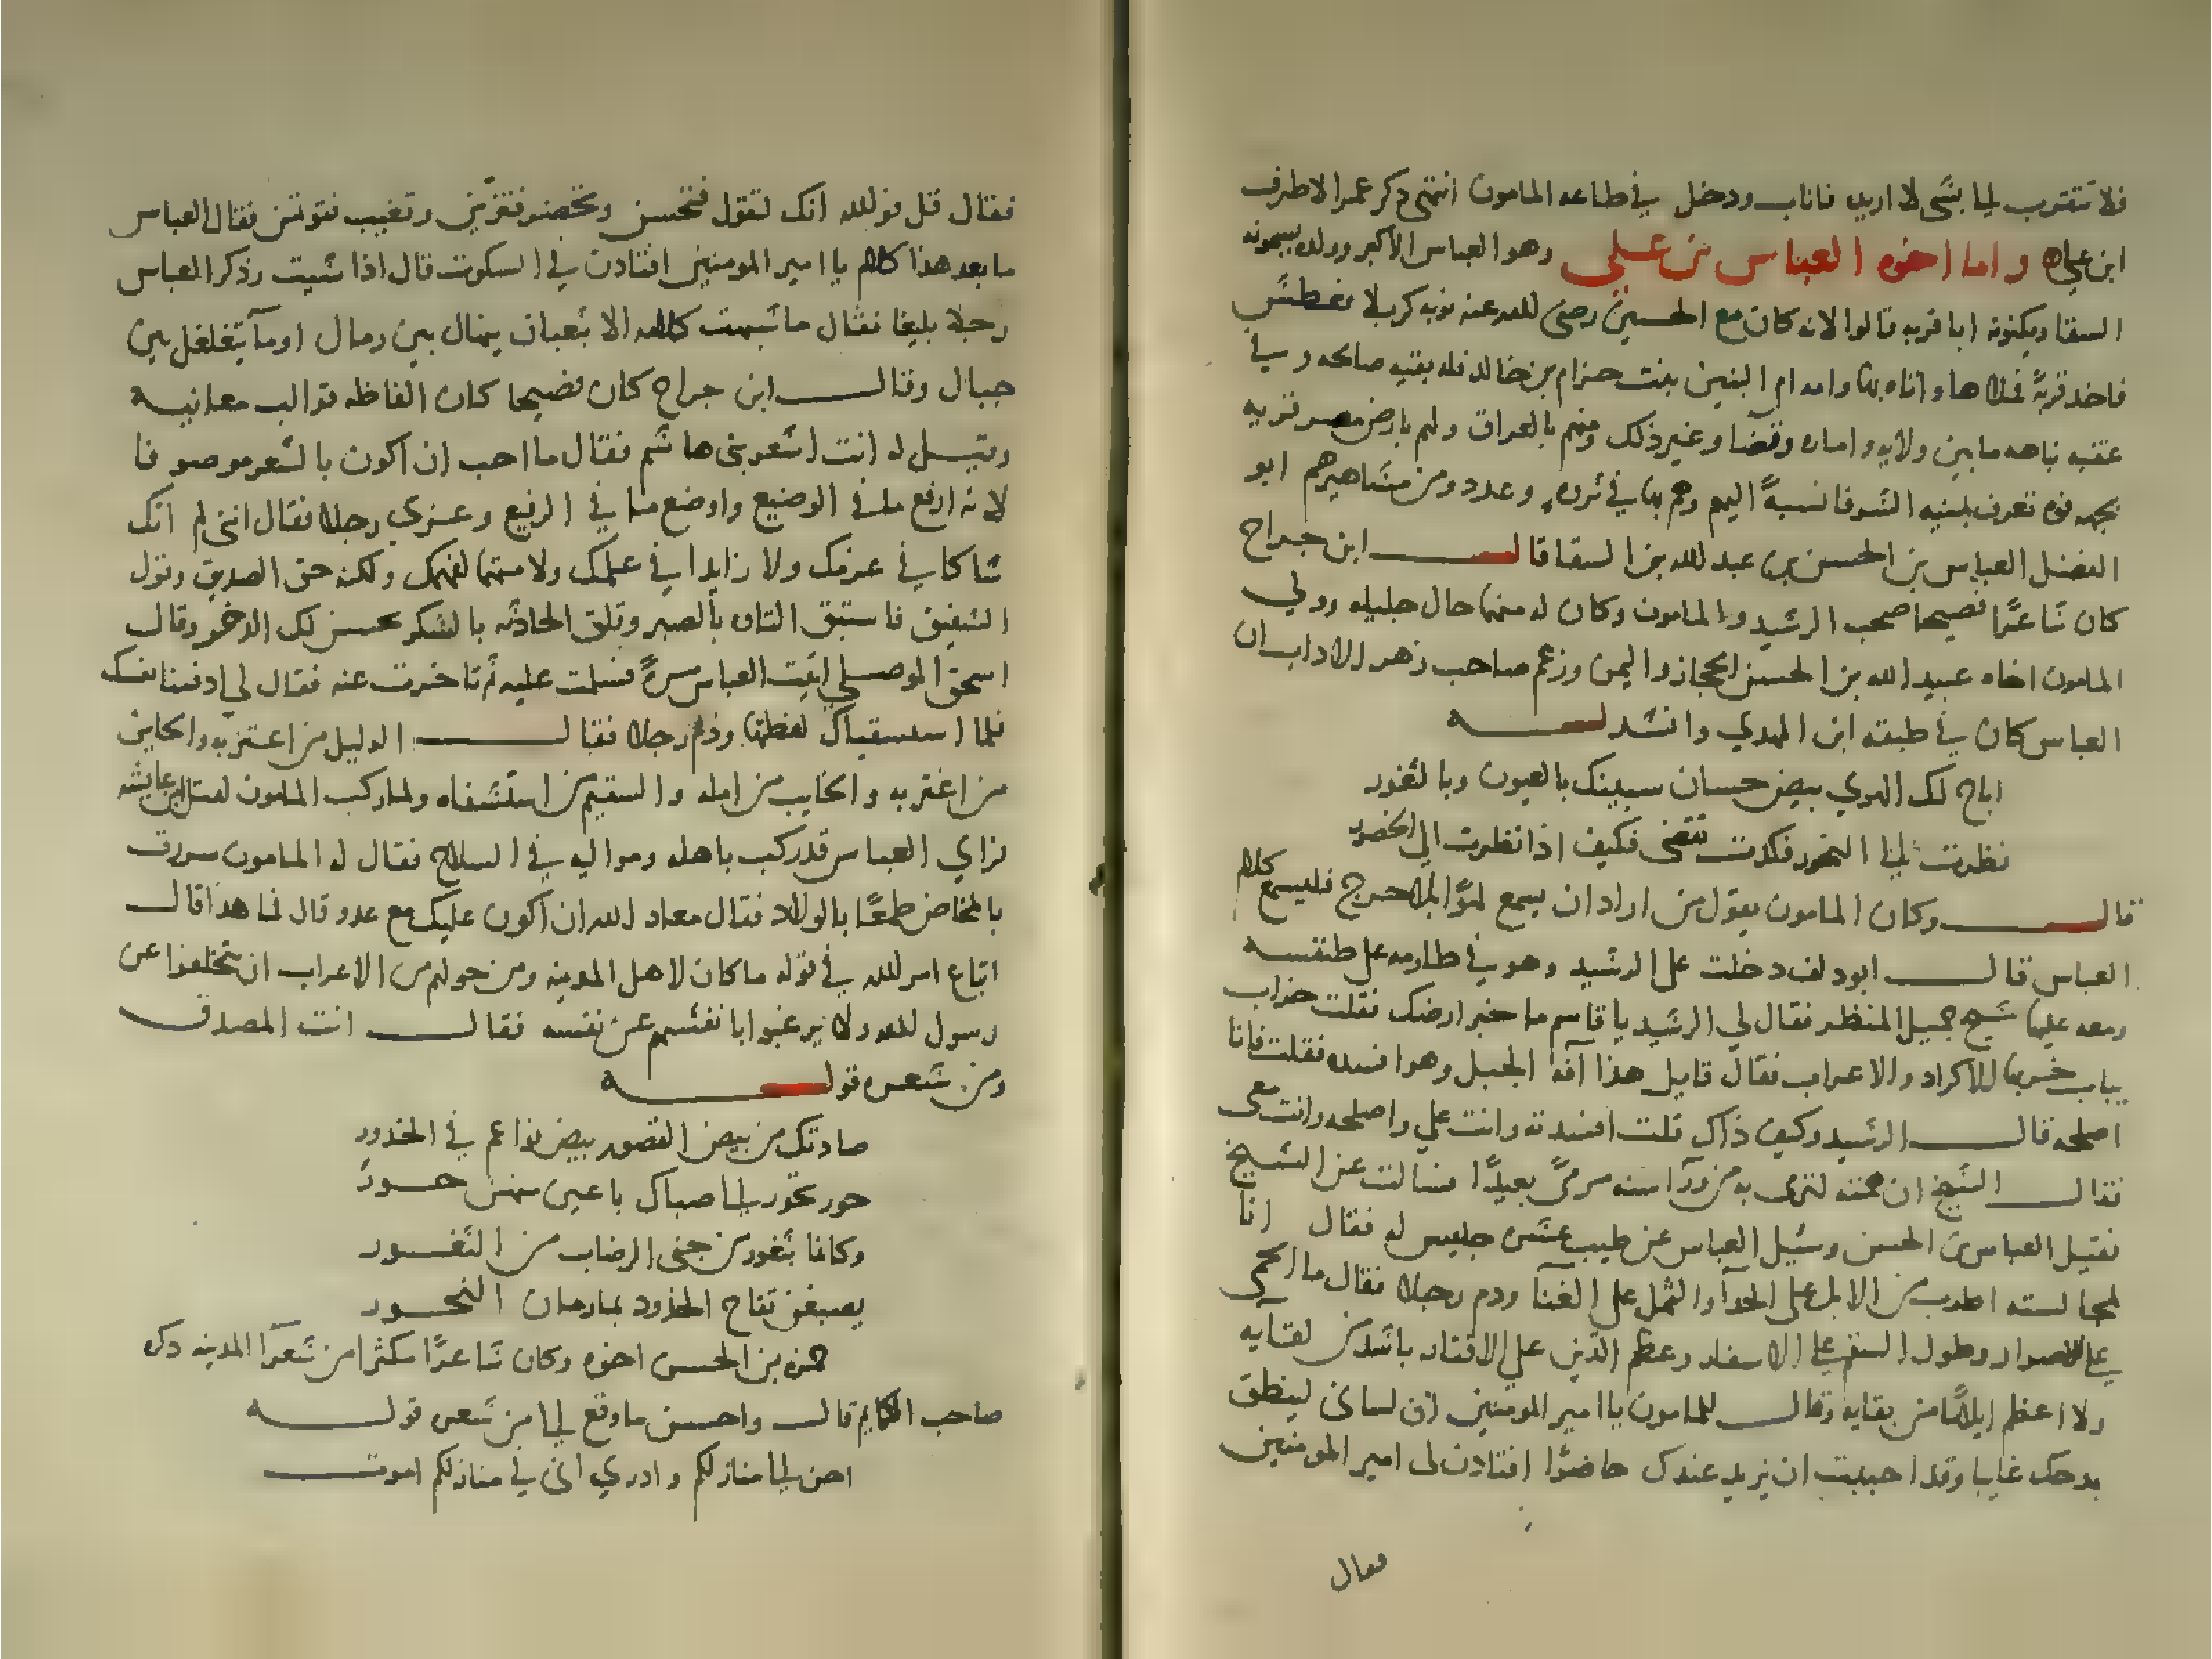 فلا تتقرب لي بشي لا اريده فاناب ودخل في طاعه المامون انتهى ذكر عمر الاطرف
ابن علي واما اخوه العباس بن علي وهو العباس الاكبر وولده يسمونه
السقا ويكنونه ابا قربه قالوا لانه كان مع الحسين رضى الله عنه نوبه كربلا فعطش
فاخذ قربة فملاها واتاه بها وامه ام البنين بنت حزام بن خالد فله بقيه صالحه وسيا في
عقبه نباهه ما بين ولايه وامان وقضا وغير ذلك ومنهم بالعراق ولهم بارض مصر قريه
بجهه فوه تعرف بمنيه الشرفا نسبةً اليهم وهم بها في ثروه وعدد ومن مشاهيرهم ابو
الفضل العباس بن الحسن بن عبد الله بن السقا قال ابن جراح
كان شاعرًا فصيحا صحب الرشيد والمامون وكان له منهما حال جليله وولي
المامون اخاه عبيد الله بن الحسن الحجاز واليمن وزعم صاحب زهر الاداب ان
العباس كان في طبقه ابن المهدي وانشد له
اباح لك الهوي بيض حسان سبينك بالعيون وبالثغور
نظرت الي النحور فكدت تقضى فكيف اذا نظرت الي الخصور
قال وكان المامون يقول من اراد ان يسمع لهوًا بلا حرج فليسمع كلام
العباس قال ابو دلف دخلت على الرشيد وهو في طارمه على طنفسه
ومعه عليها شيخ جميل المنظر فقال لي الرشيد يا قاسم ما خبر ارضك فقلت خراب
يباب خربها الاكراد والاعراب فقال قايل هذا آفة الجبل وهو افسده فقلت فانا
اصلحه قال الرشيد وكيف ذاك قلت افسدته وانت علي واصلحه وانت معى
فقال الشيخ ان همته لترى به من ورآ سنه مرمىً بعيدًا فسالت عن الشيخ
فقيل العباس بن الحسن وسئيل العباس عن طيب عشره جليس له فقال انا
لمجالسته اطرب من الابل على الحدآ والثمل على الغنآ وذم رجلا فقال ما الحمى
على الاصرار وطول السقم على الاسفار وعظم الدين على الاقتار باشد من لقايه
ولا اعظم ايلامًا من بقايه وقال للمامون يا امير المومنين ان لسانى لينطق
بمدحك غايبا وقد احببت ان يزيد عندك حاضرًا افتاذن لى امير المومنين
فقال
فقال قل فوالله انك لتقول فتحسن وتحضر فتزين وتغيب فتوتمن فقال العباس
ما بعد هذا كلام يا امير المومنين افتاذن في السكوت قال اذا شيت وذكر العباس
رجلا بليغا فقال ما شبهت كلامه الا بثعبان ينهال بين رمال اومآ يتغلغل بين
جبال وقال ابن جراح كان فصيحا كان الفاظه قوالب معانيه
وقيل له انت اشعر بنى هاشم فقال ما احب ان اكون بالشعر موصوفا
لانه ارفع ما في الوضيع واوضع ما في الرفيع وعزي رجلا فقال انى لم اتك
شاكا في عزمك ولا زايدا في علمك ولا متهما لفهمك ولكنه حق الصديق وقول
الشفيق فاستبق السلوه بالصبر وتلق الحادثه بالشكر يحسن لك الذخر وقال
اسحق الموصلي لقيت العباس مرةً فسلمت عليه ثم تاخرت عنه فقال لي ادفننا نفسك
فلما استسقياك لفظتها وذم رجلا فقال الذليل من اعتز به والخاين
من اغتر به والخايب من امله والسقيم من استشفاه ولما ركب المامون لقتل ابن عايشه
فراي العباس قد ركب باهله ومواليه في السلاح فقال له المامون سررت
بالمخاض طمعًا بالولاد فقال معاذ الله ان اكون عليك مع عدو قال فما هذا قال
اتباع امر الله في قوله ما كان لاهل المدينه ومن حولهم من الاعراب ان يتخلفوا عن
رسول الله ولا يرغبوا بانفسهم عن نفسه فقال انت المصدق
ومن شعره قوله
صادتك من بيض القصور بيض نواعم في الخدور
حور تحور الي صباك باعين منهن حور
وكانما بثغورهن جنى الرضاب من الثغور
يصبغن تفاح الخدود بما رمان النحور
حمزه بن الحسن اخوه وكان شاعرًا مكثرا من شعرآ المدينه ذكره
صاحب الكمايم قال واحسن ما وقع لي من شعره قوله
احن الي منازلكم وادري انى في منازلكم اموت